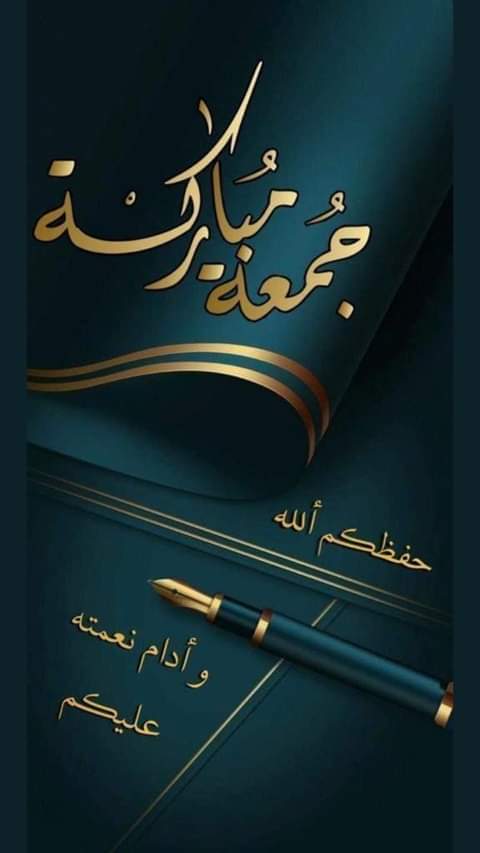 جُمعة مُباركة
حفظكم ألله
و أدام نعمته
عليكم